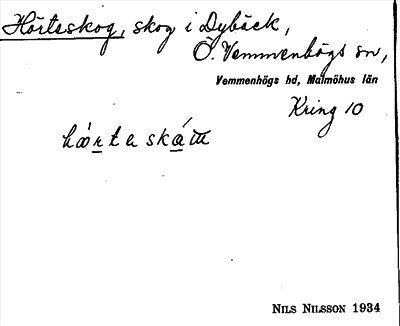 Hörteskog, skog i Dybäck,
Ö. Vemmenhögs sn,
Vemmenhögs hd, Malmöhus län
Kring 10
NILS NILSSON 1934